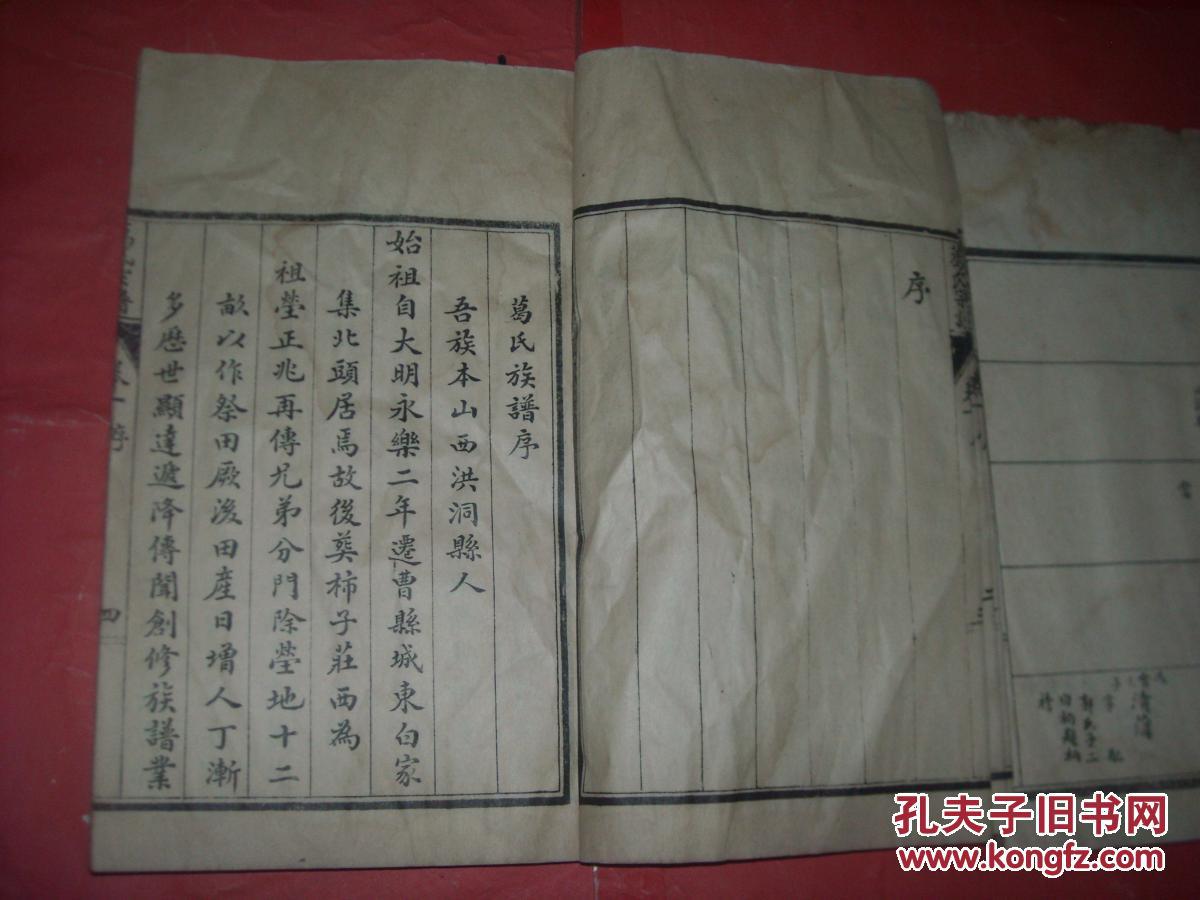 序
葛氏族譜序
吾族本山西洪洞縣人
始祖自大明永樂二年遷曹縣城東白家
集北頭居焉故後葬柿子莊西為
祖塋正兆再傳兄弟分門除塋地十二
畝以作祭田厥後田產日增人丁漸
多歷世顯達遞降傳聞創修族譜業
卷一 序
四
孔夫子旧书网
www.kongfz.com